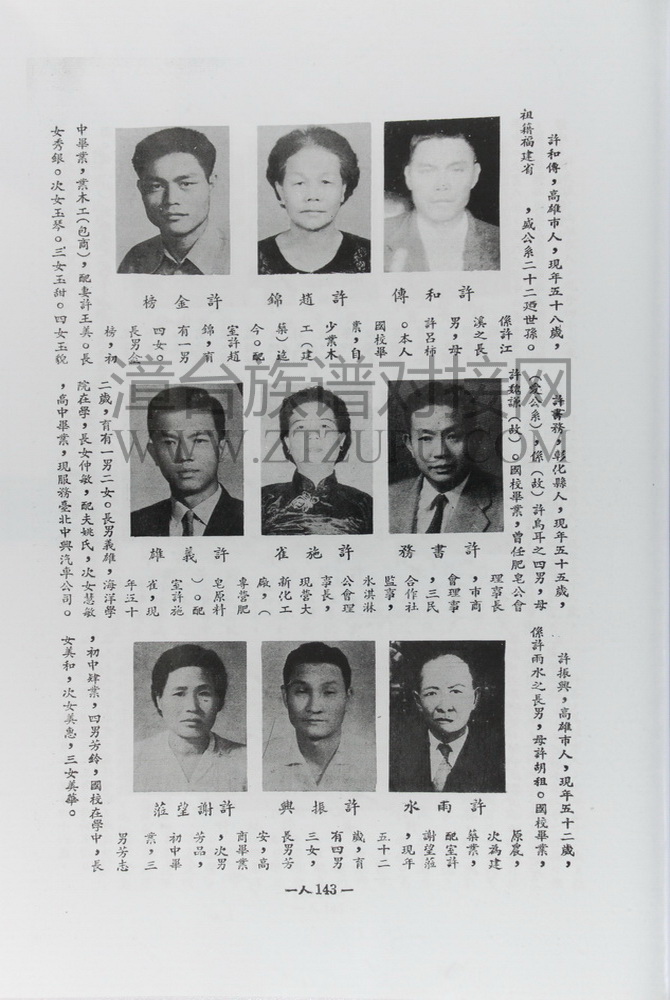 許和傳，高雄市人，現年五十八歲，
祖籍福建省　，盛公系二十二廼世孫。
傳和許
錦趙許
榜金許
係許江
溪之長
男，母
許呂柿
。本人
國校畢
業，自
少業木
工（建
築）迄
今。配
室許趙
錦，育
有一男
四女。
長男金
榜，初
中畢業，業木工（包商），配妻許王美。長
女秀銀。次女玉琴。三女玉甜。四女玉貌
許書務，彰化縣人，現年五十五歲，
（愛公系），係（故）許烏耳之四男，母
許魏謙（故）。國校畢業，曾任肥皂公會
務書許
雀施許
雄義許
理事長
，市商
會理事
，三民
合作社
監事，
永淇淋
公會理
事長，
現營大
新化工
廠，（
專營肥
皂原料
）。配
室許施
雀，現
年五十
二歲，育有一男二女。長男義雄，海洋學
院在學，長女仲敏，配夫姚氏，次女慧敏
，高中畢業，現服務臺北中興汽車公司。
許振興，高雄市人，現年五十二歲，
係許雨水之長男，母許胡祖。國校畢業，
水雨許
興振許
茳望謝許
原農，
次為建
築業，
配室許
謝望茳
，現年
五十二
歲，育
有四男
三女，
長男芳
安，高
商畢業
，次男
芳品，
初中畢
業，三
男芳志
，初中肄業，四男芳鈴，國校在學中，長
女美和，次女美惠，三女美華。
一人143一
漳台族谱对接网
WWW.ZTZUPU.COM